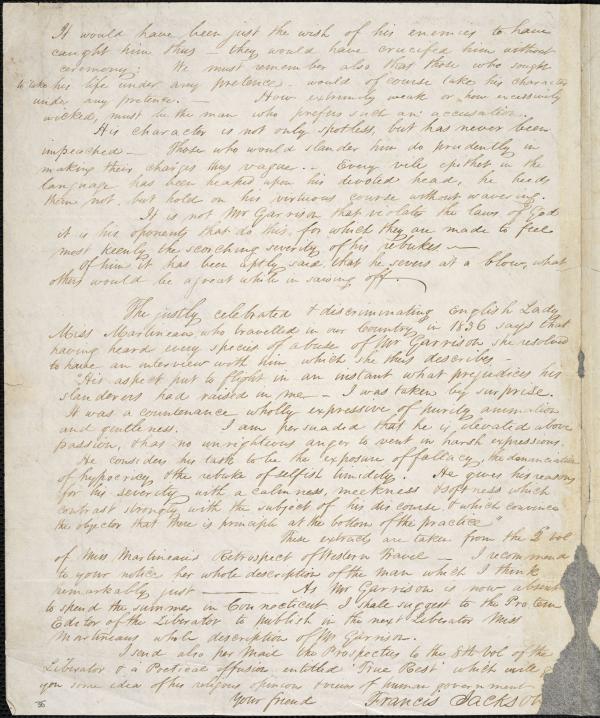 It would have been just the wish of his enemies to have
caught him thus — they would have crucified him without
ceremony. We must remember also that those who sought
to take his life under any pretence – would of course take his character
under any pretence. — How extremely weak or how excessively
wicked, must be the man who prefers such an accusation.
His character is not only spotless, but has never been
impeached — Those who would slander him do prudently in
making their charges thus vague. – Every vile epithet in the
language has been heaped upon his devoted head, he heeds
them not, but hold on his virtuous course without wavering.
It is not Mr Garrison that violates the laws of God
it is his oponents that do this, for which they are made to feel
most keenly the scorching severity of his rebukes —
Of him it has been aptly said, that he severs at a blow, what
others would be a great while in sawing off.
The justly celebrated & discriminating English Lady
Miss Martineau, who travelled in our Country in 1836 says that
having heard every species of abuse of Mr Garrison she resolved
to have an interview with him which she thus describes —
"His aspect put to flight in an instant what prejudices his
slanderers had raised in me — I was taken by surprise.
It was a countenance wholly expressive of purity, animation
and gentleness. I am persuaded that he is elevated above
passion, & has no unrighteous anger to vent in harsh expressions.
He considers his task to be the exposure of fallacy, the denunciation
of hypocricy & the rebuke of selfish timidity. He gives his reasons
for his severity with a calmness, meekness & softness which
contrast strongly with the subject of his discourse, & which convince
the objector that there is principle at the bottom of the practice"
These extracts are taken from the 2d vol
of Miss Martineau's Retrospect of Western Travel — I recommend
to your notice her whole description of the man which I think
remarkably just — As Mr Garrison is now absent
to spend the summer in Connecticut, I shall suggest to the Pro. tem
Editor of the Liberator to publish in the next Liberator Miss
Martineaus whole description of Mr Garrison.
I send also per Mail the Prospectus to the 8th Vol of the
Liberator & a Poetical effusion entitled 'True Rest' which will
you some idea of his religious opinions & views of human government
Your friend Francis Jackson
36